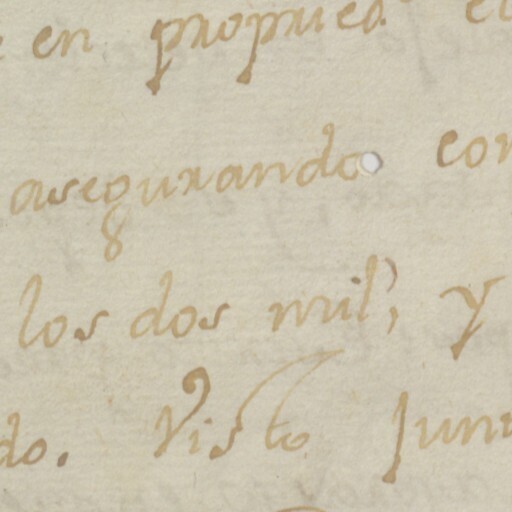 en propried. el
asegurando con
los dos mil, y
do. Visto Jun